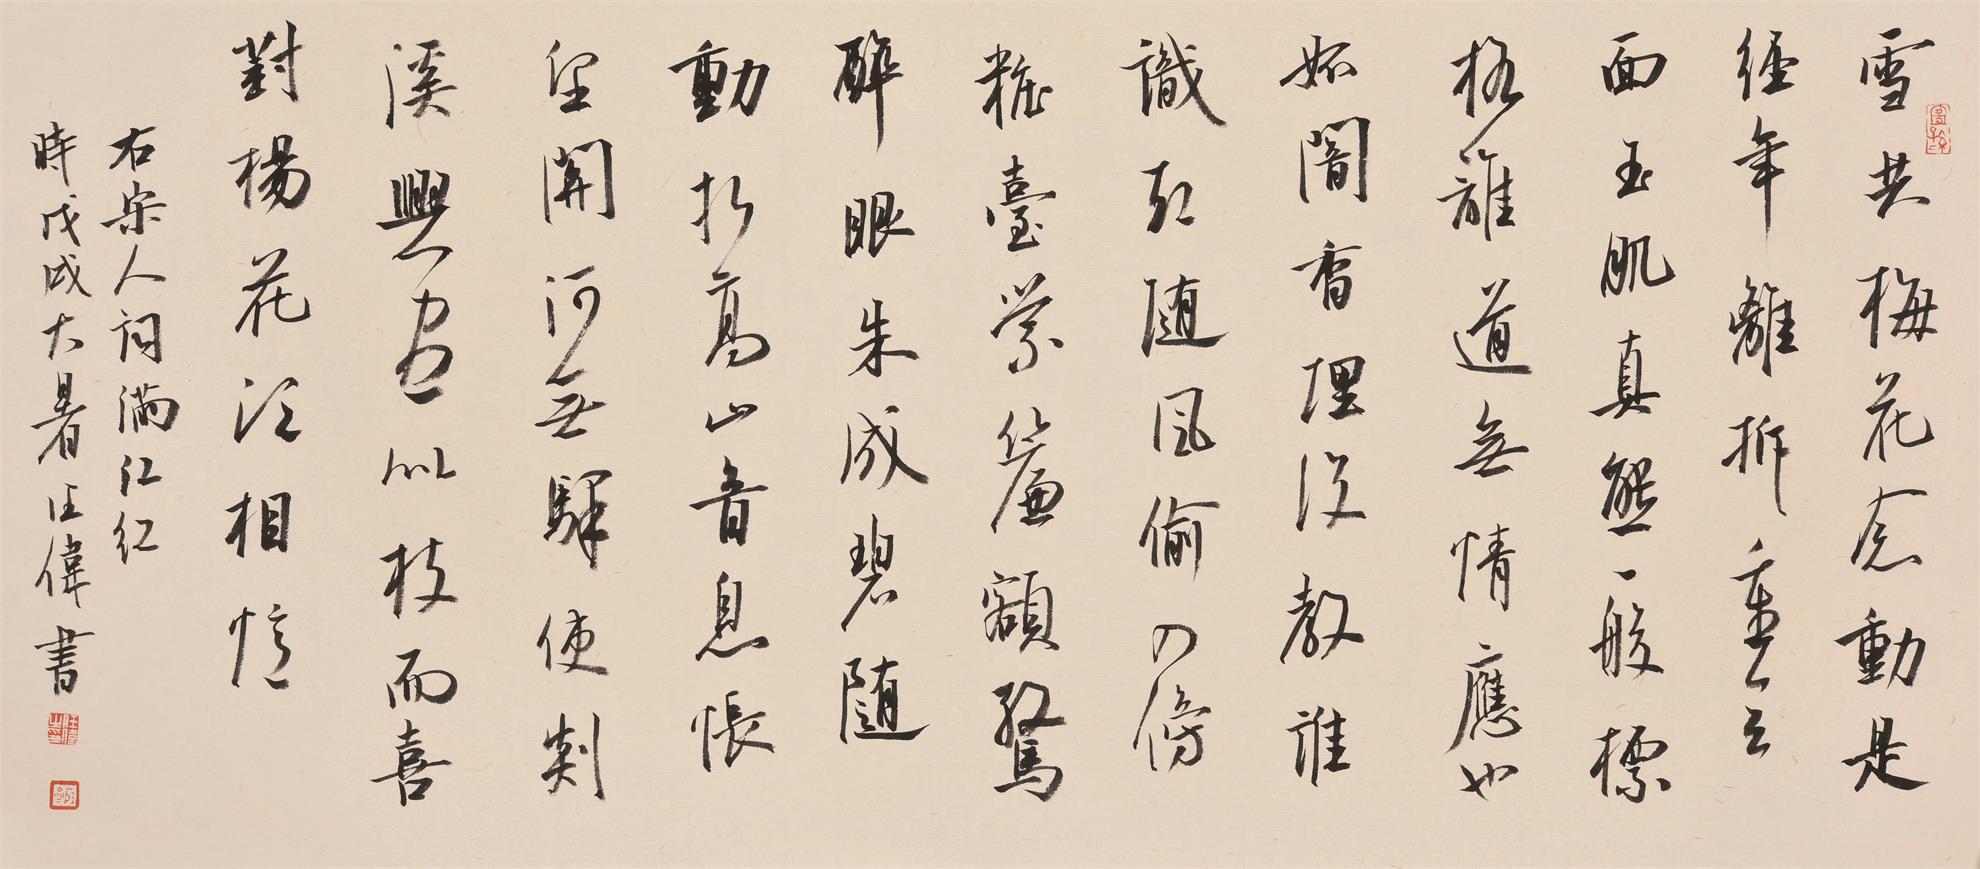 雪共梅花念動是
經年離拆重會
面玉肌真態一般標
格誰道無情應也
妬闇香埋没教誰
識却随風偷入傍
粧臺縈簾額驚
醉眼朱成碧随
動折高山音息悵
望關河無驛使剡
溪興盡似枝而喜
對楊花須相憶
右宋人詞滿江紅
時戊戌大暑汪偉書